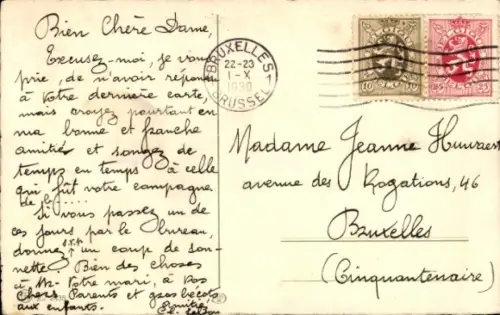 Bien Chère Dame,
Excusez-moi, je vous
prie, de n'avoir répondu
à votre dernière carte,
mais croyez pourtant en
ma bonne et franche
amitié et songez de
temps en temps à celle
qui fût votre compagne
de
Si vous passez un de
ces jours par le bureau,
donnez s.v.p. un coup de son-
nette. Bien des choses
à Mr. votre mari, à vos
chers Parents et gros bécots
aux enfants.
BRUXELLES 1
22-23
1-X
1930
BRUSSEL
BELGIQUE
10 10
BELGIQUE
25 25
Madame Jeanne
avenue des Rogations, 46
Bruxelles
(Cinquantenaire)